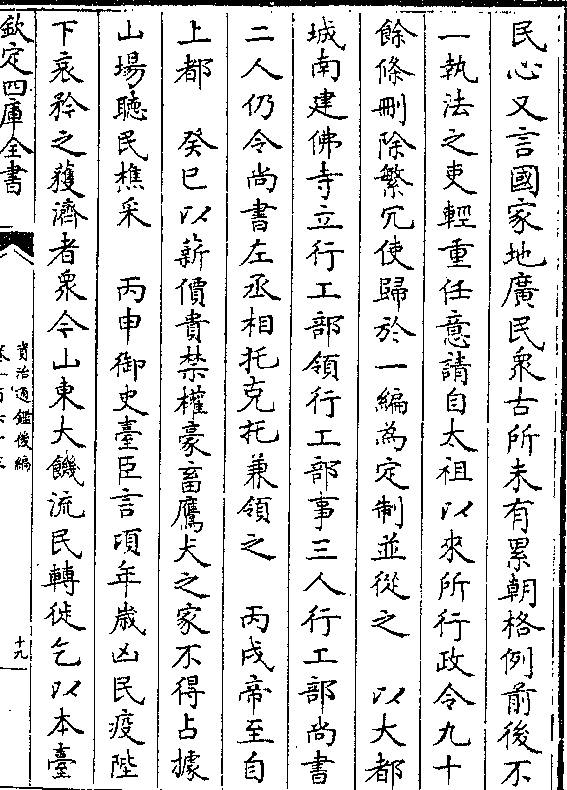 民心又言國家地廣民衆古所未有累朝格例前後不
一執法之吏輕重任意請自太祖以來所行政令九十
餘條刪除繁冗使歸於一編為定制並從之　以大都
城南建佛寺立行工部領行工部事三人行工部尚書
二人仍令尚書左丞相托克托兼領之　丙戌帝至自
上都　癸巳以薪價貴禁權豪畜鷹犬之家不得占據
山場聽民樵采　丙申御史臺臣言頃年歳凶民疫陛
下哀矜之獲濟者衆今山東大饑流民轉徙乞以本臺
欽定四庫全書
資治通鑑後編
十九